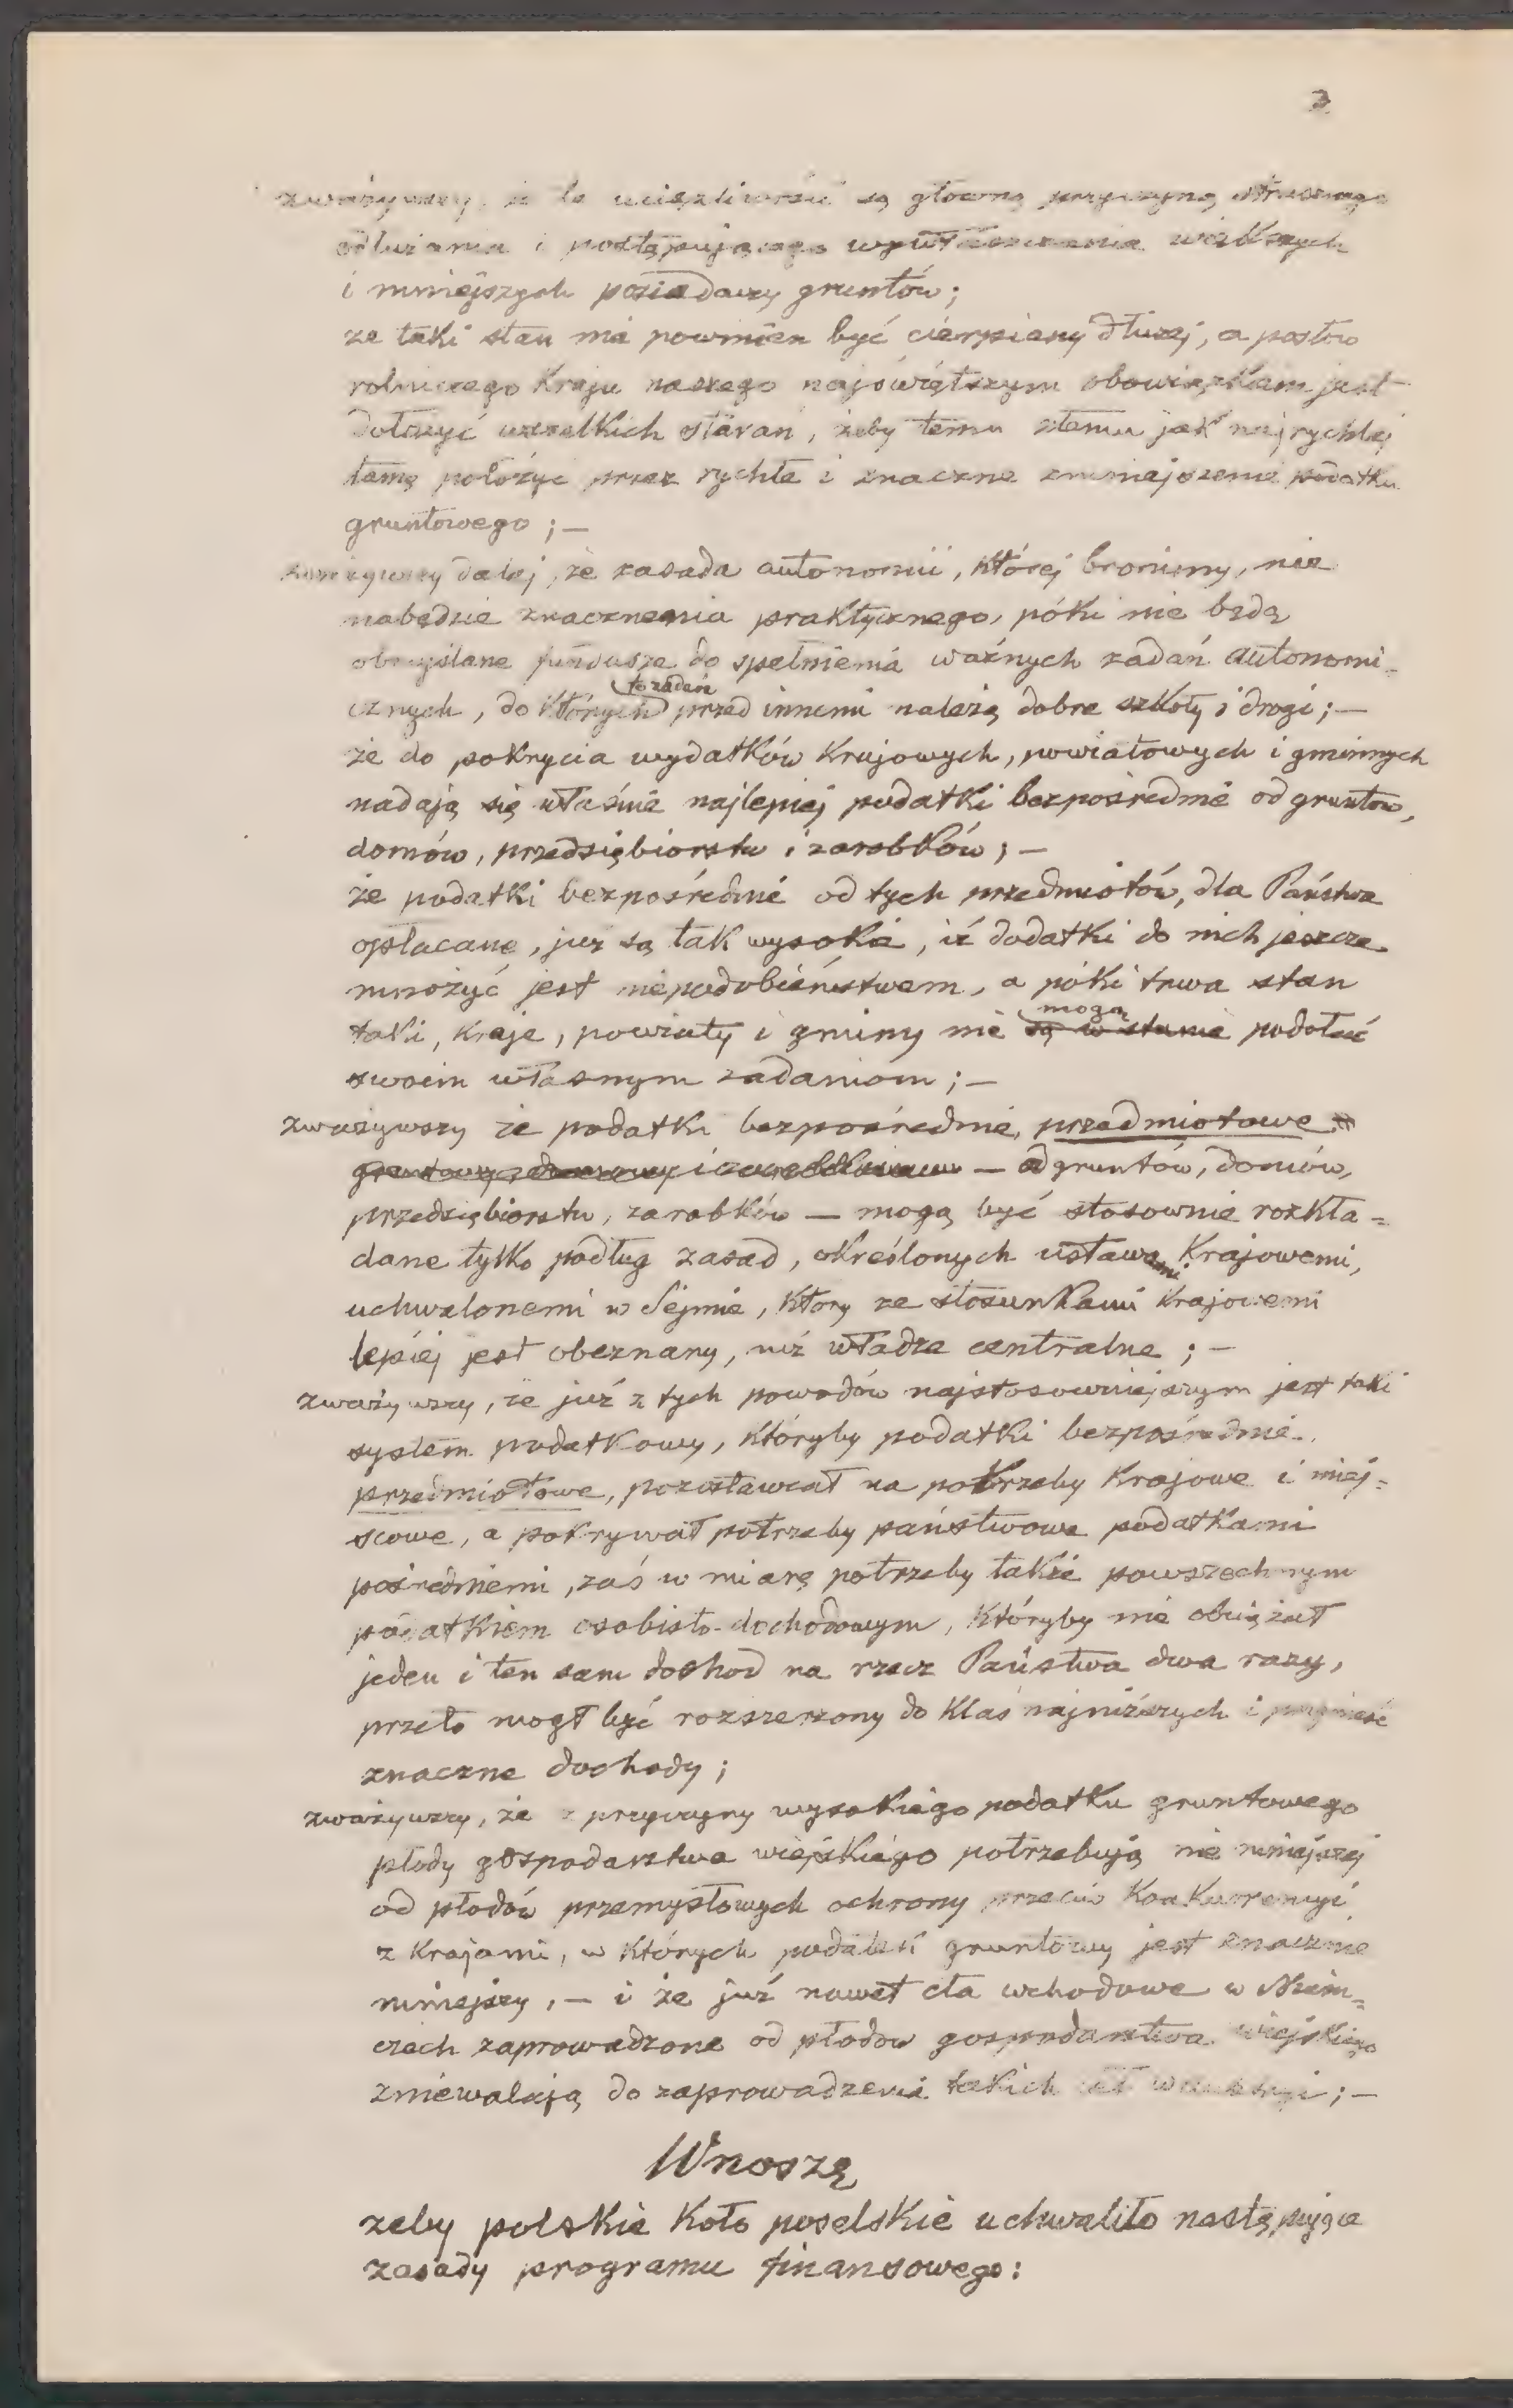 3
zważywszy, że te uciążliwości są główną przyczyną
odłużania i postępującego wywłaszczania większych
i mniejszych posiadaczy gruntów;
że taki stan nie powinien być cierpiany dłużej, a posłów
rolniczego Kraju naszego najświętszym obowiązkiem jest
dołożyć wszelkich starań, żeby temu złemu jak najrychlej
tamę położyć przez rychłe i znaczne zmniejszenie podatku
gruntowego ;—
zważywszy dalej, że zasada autonomii, której bronimy, nie
nabędzie znaczenia praktycznego, póki nie będą
obmyślane fundusze do spełnienia ważnych zadań autonomi=
to zadań
cznych, do których przed innemi należą dobre szkoły i drogi;—
że do pokrycia wydatków Krajowych, powiatowych i gminnych
nadają się właśnie najlepiej podatki bezpośrednie od gruntów,
domów, przedsiębiorstw i zarobków; —
że podatki bezpośrednie od tych przedmiotów, dla Państwa
opłacane, już są tak wysokie, iż dodatki do nich jeszcze
mnożyć jest niepodobieństwem, a póki trwa stan
mogą
taki, Kraje, powiaty i gminy nie są w stanie podołać
swoim własnym zadaniom ;—
zważywszy że podatki bezpośrednie, przedmiotowe
— od gruntów, domów,
przedsiębiorstw, zarobków — mogą być stosownie rozkła=
dane tylko podług zasad, określonych ustawami Krajowemi,
uchwalonemi w Sejmie, który ze stosunkami Krajowemi
lepiej jest obeznany, niż władze centralne ; —
zważywszy, że już z tych powodów najstosowniejszym jest taki
system podatkowy, któryby podatki bezpośrednie
przedmiotowe, pozostawiał na potrzeby Krajowe i miej=
scowe, a pokrywał potrzeby państwowe podatkami
pośredniemi, zaś w miarę potrzeby także powszechnym
podatkiem osobisto-dochodowym, któryby nie obciążał
jeden i ten sam dochód na rzecz Państwa dwa razy,
przeto mógł być rozszerzony do Klas najniższych i przynieść
znaczne dochody ;
zważywszy, że z przyczyny wysokiego podatku gruntowego
płody gospodarstwa wiejskiego potrzebują nie mniejszej
od płodów przemysłowych ochrony przeciw Konkurencyi
z Krajami, w których podatek gruntowy jest znacznie
mniejszy, — i że już nawet cła wchodowe w Niem=
czech zaprowadzone od płodów gospodarstwa wiejskiego
zniewalają do zaprowadzenia takich ceł w Austryi ;—
Wnoszę
żeby polskie Koło poselskie uchwaliło następujące
zasady programu finansowego :